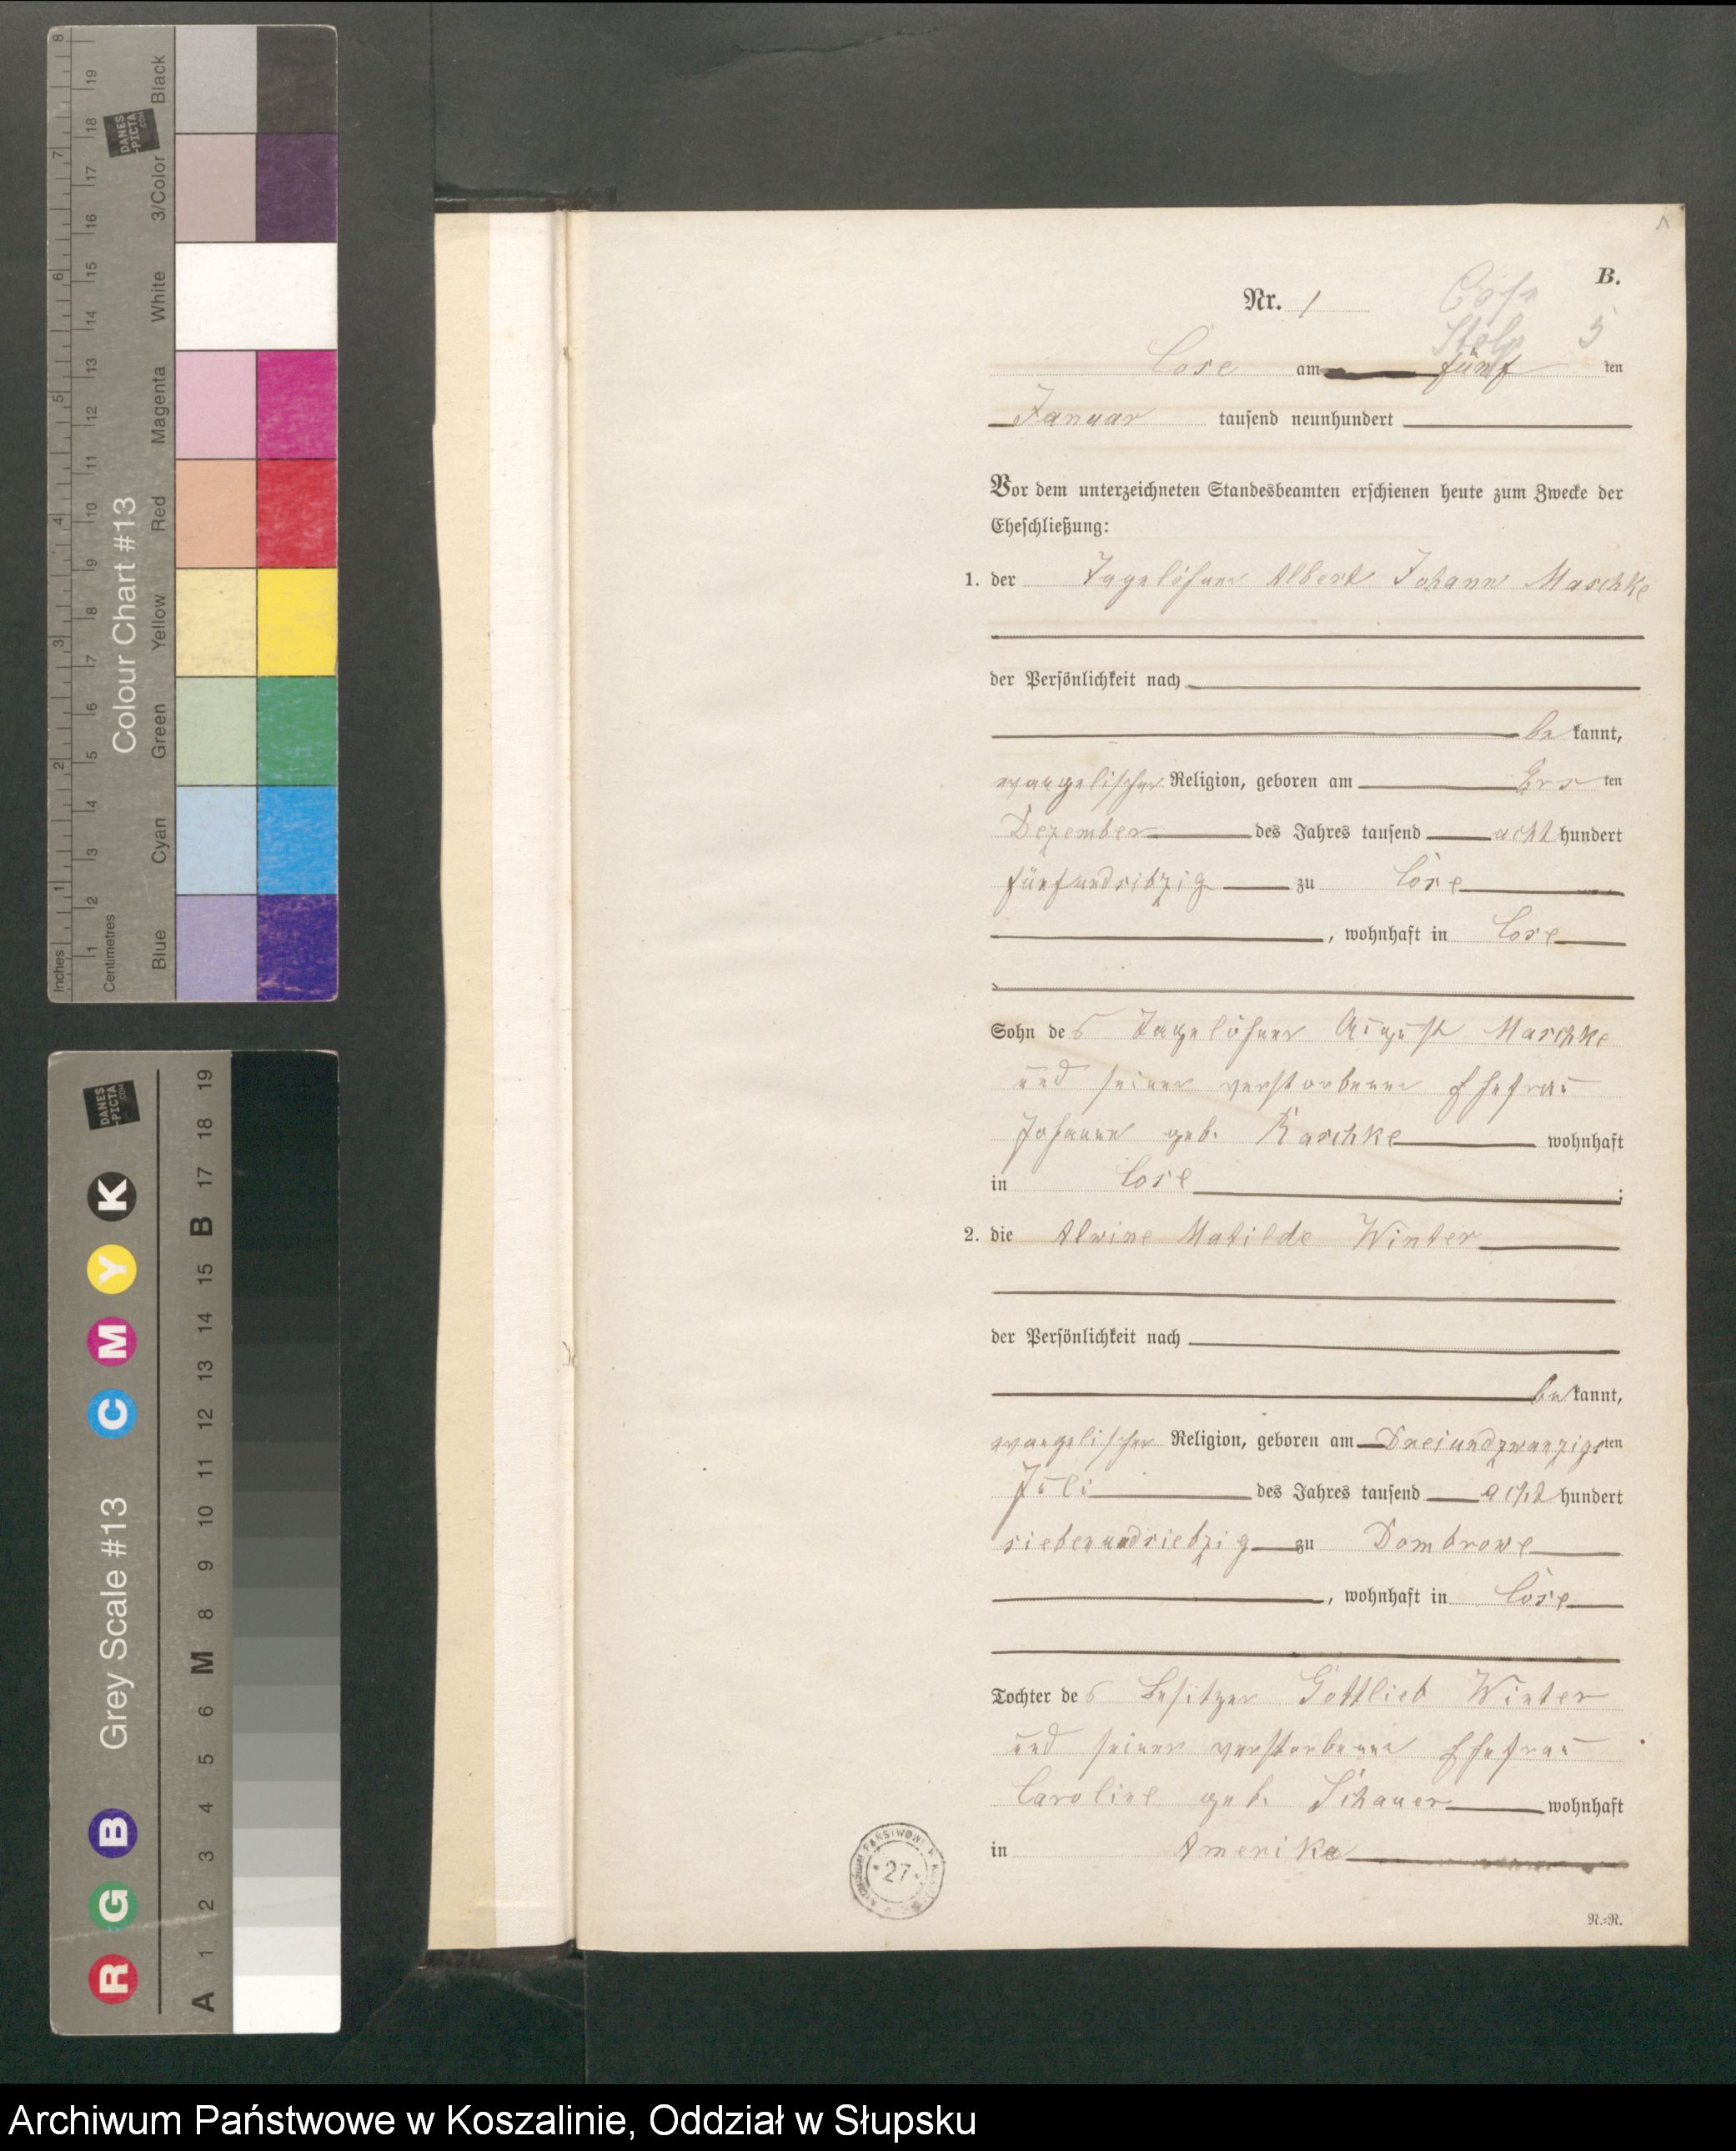 8
19
Black
DANES
-PICTA
.COM
18
7
17
3/Color
16
6
15
White
14
Colour Chart #13
13
5
12
Magenta
11
4
10
Red
9
8
Yellow
3
7
6
Green
2
5
4
Cyan
3
1
2
Blue
1
Inches
Centimetres
DANES
-PICTA
.COM
Grey Scale #13
R G B C M Y K
A 1 2 3 4 5 6 M 8 9 10 11 12 13 14 15 B 17 18 19
B.
Nr. 1
Stolp 5
Cose am fünf ten
Januar tausend neunhundert
Vor dem unterzeichneten Standesbeamten erschienen heute zum Zwecke der
Eheschließung:
1. der Tagelöhner Albert Johann Maschke
der Persönlichkeit nach
be kannt,
evangelischer Religion, geboren am Ers ten
Dezember des Jahres tausend acht hundert
fünfundsibzig zu Cose
, wohnhaft in Cose
Sohn des Tagelöhner August Maschke
und seiner verstorbenen Ehefrau
Johanne geb. Raschke wohnhaft
in Cose ;
2. die Alwine Matilde Winter
der Persönlichkeit nach
be kannt,
evangelischer Religion, geboren am Dreiundzwanzigsten
Juli des Jahres tausend acht hundert
siebenundsiebzig zu Dombrowe
, wohnhaft in Cose
Tochter des Besitzer Gottlieb Winter
und seiner verstorbenen Ehefrau
Caroline geb. Schauer wohnhaft
in Amerika
27
N.=N.
Archiwum Państwowe w Koszalinie, Oddział w Słupsku